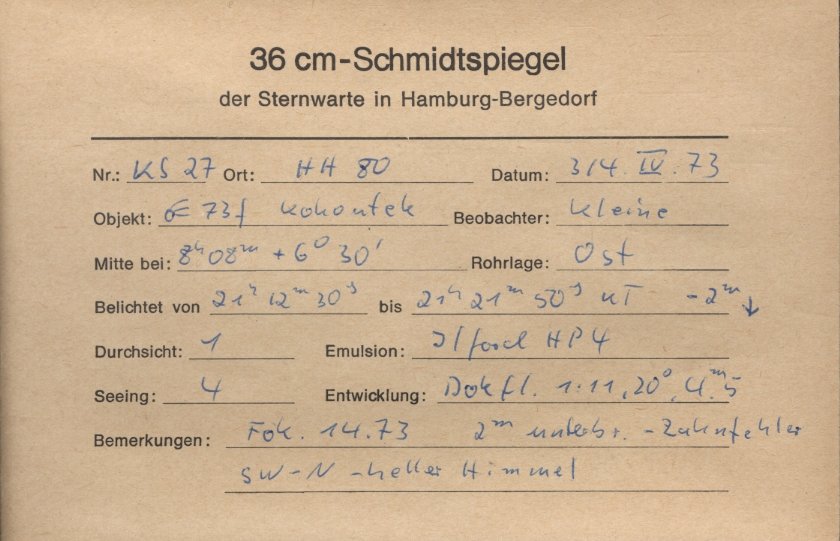 36 cm-Schmidtspiegel
der Sternwarte in Hamburg-Bergedorf
Nr.: KS 27 Ort: HH 80 Datum: 3/4. IV. 73
Objekt: 73f Kohoutek Beobachter: Kleine
Mitte bei: 8h 08m + 6° 30' Rohrlage: Ost
Belichtet von 21h 12m 30s bis 21h 21m 50s UT -2m ↓
Durchsicht: 1 Emulsion: Ilford HP4
Seeing: 4 Entwicklung: Dokfl. 1:11, 20°, 4m,5
Bemerkungen: Fok. 14.73 2m unterbr. - Zahnfehler
SW-N - heller Himmel